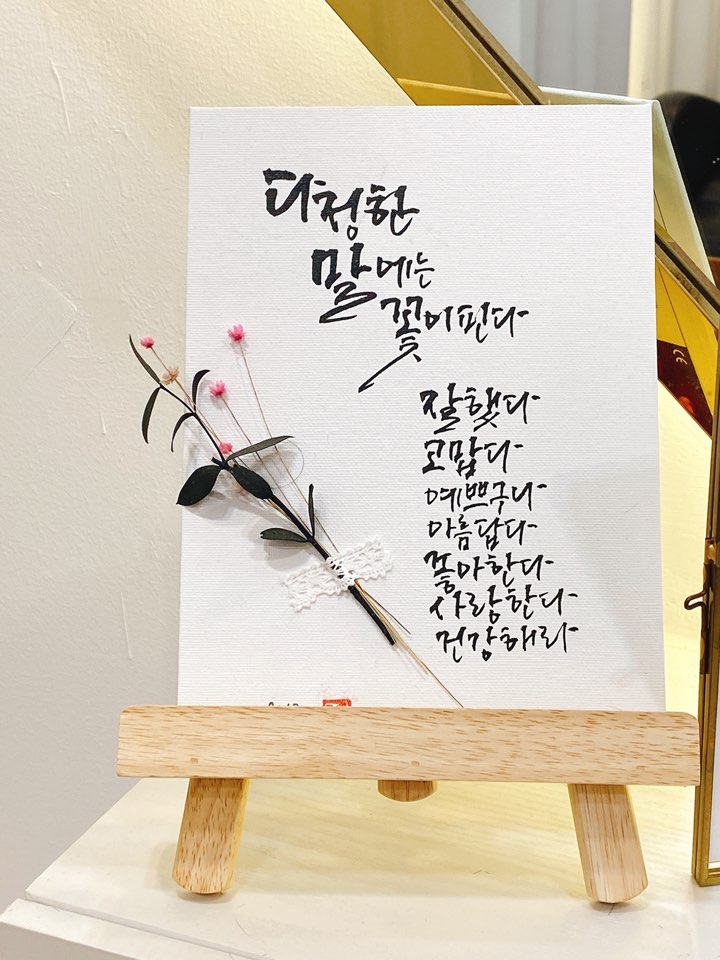 다정한
말에는
꽃이핀다
잘했다
고맙다
예쁘구나
아름답다
좋아한다
사랑한다
건강해라